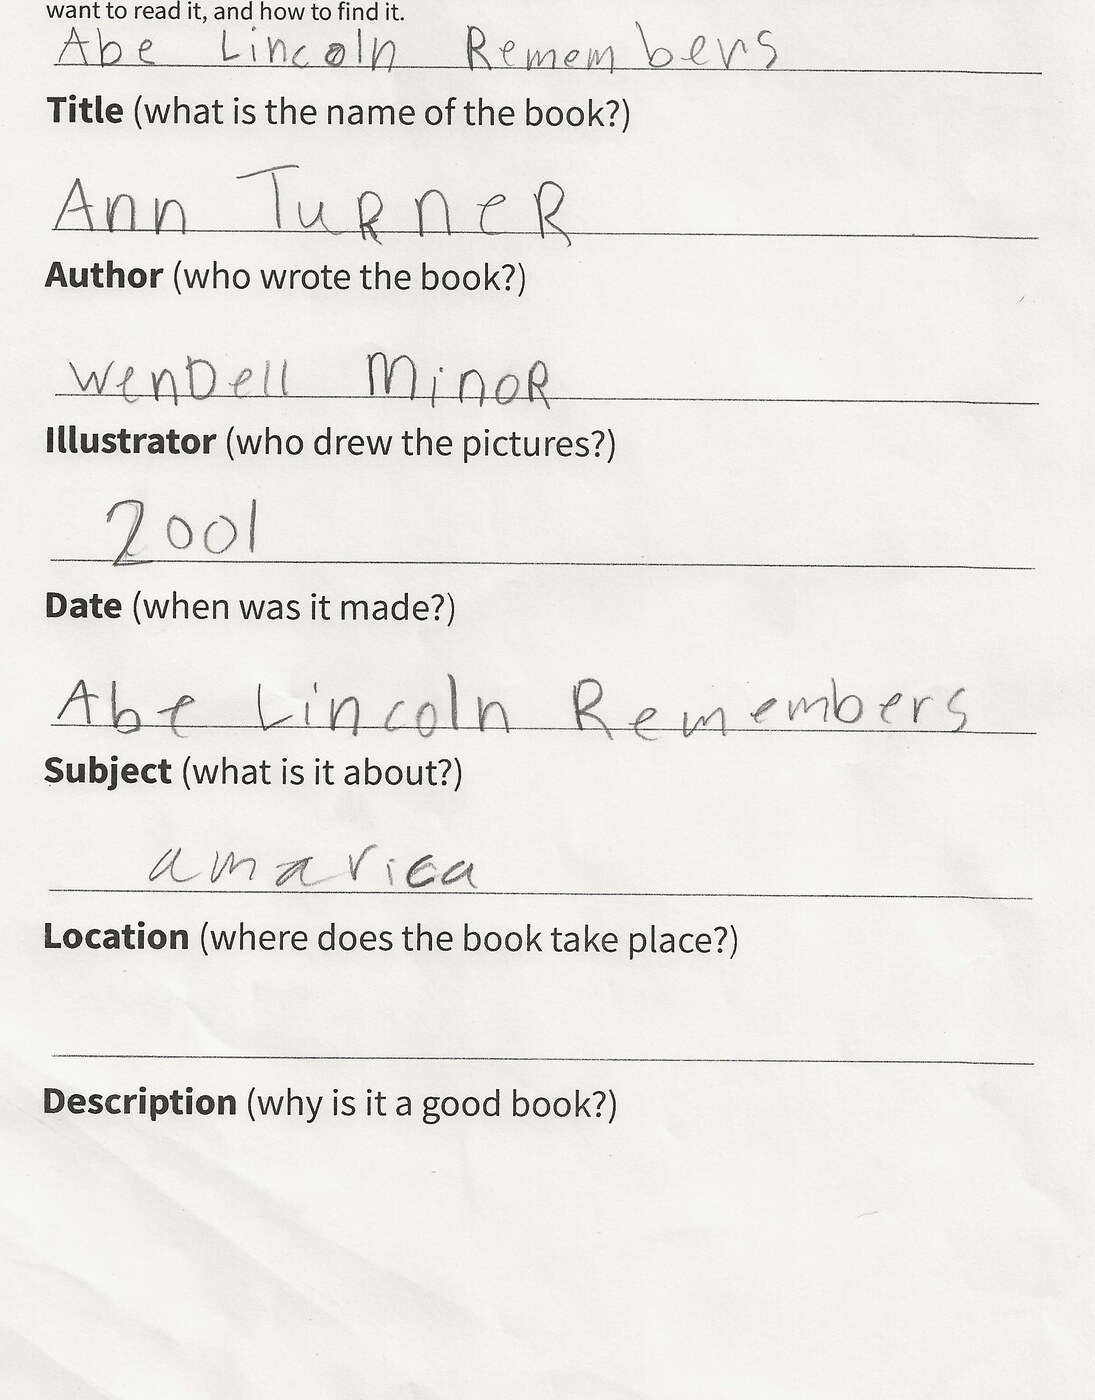 want to read it, and how to find it.
Abe Lincoln Remembers
Title (what is the name of the book?)
Ann TuRneR
Author (who wrote the book?)
WenDell MinoR
Illustrator (who drew the pictures?)
2001
Date (when was it made?)
Abe Lincoln Remembers
Subject (what is it about?)
amarica
Location (where does the book take place?)
Description (why is it a good book?)